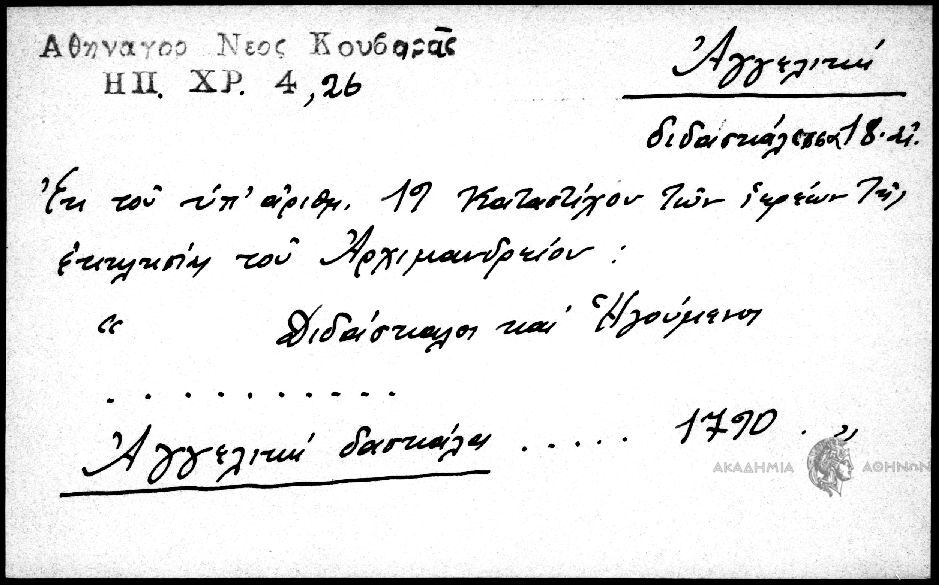 Αθηναγορ Νεος Κουβαρᾶς
ΗΠ. ΧΡ. 4, 26
Ἀγγελική
διδασκάλισσα 18. αἰ.
Ἐκ τοῦ ὑπ' ἀριθμ. 19 Καταστίχου τῶν ἱερέων τῆς
ἐκκλησίας τοῦ Ἀρχιμανδρείου :
“ Διδάσκαλοι καὶ Ἡγούμενοι
. . . . . . . . . . .
Ἀγγελική δασκάλα ..... 1790 . „
ΑΚΑΔΗΜΙΑ ΑΘΗΝΩΝ